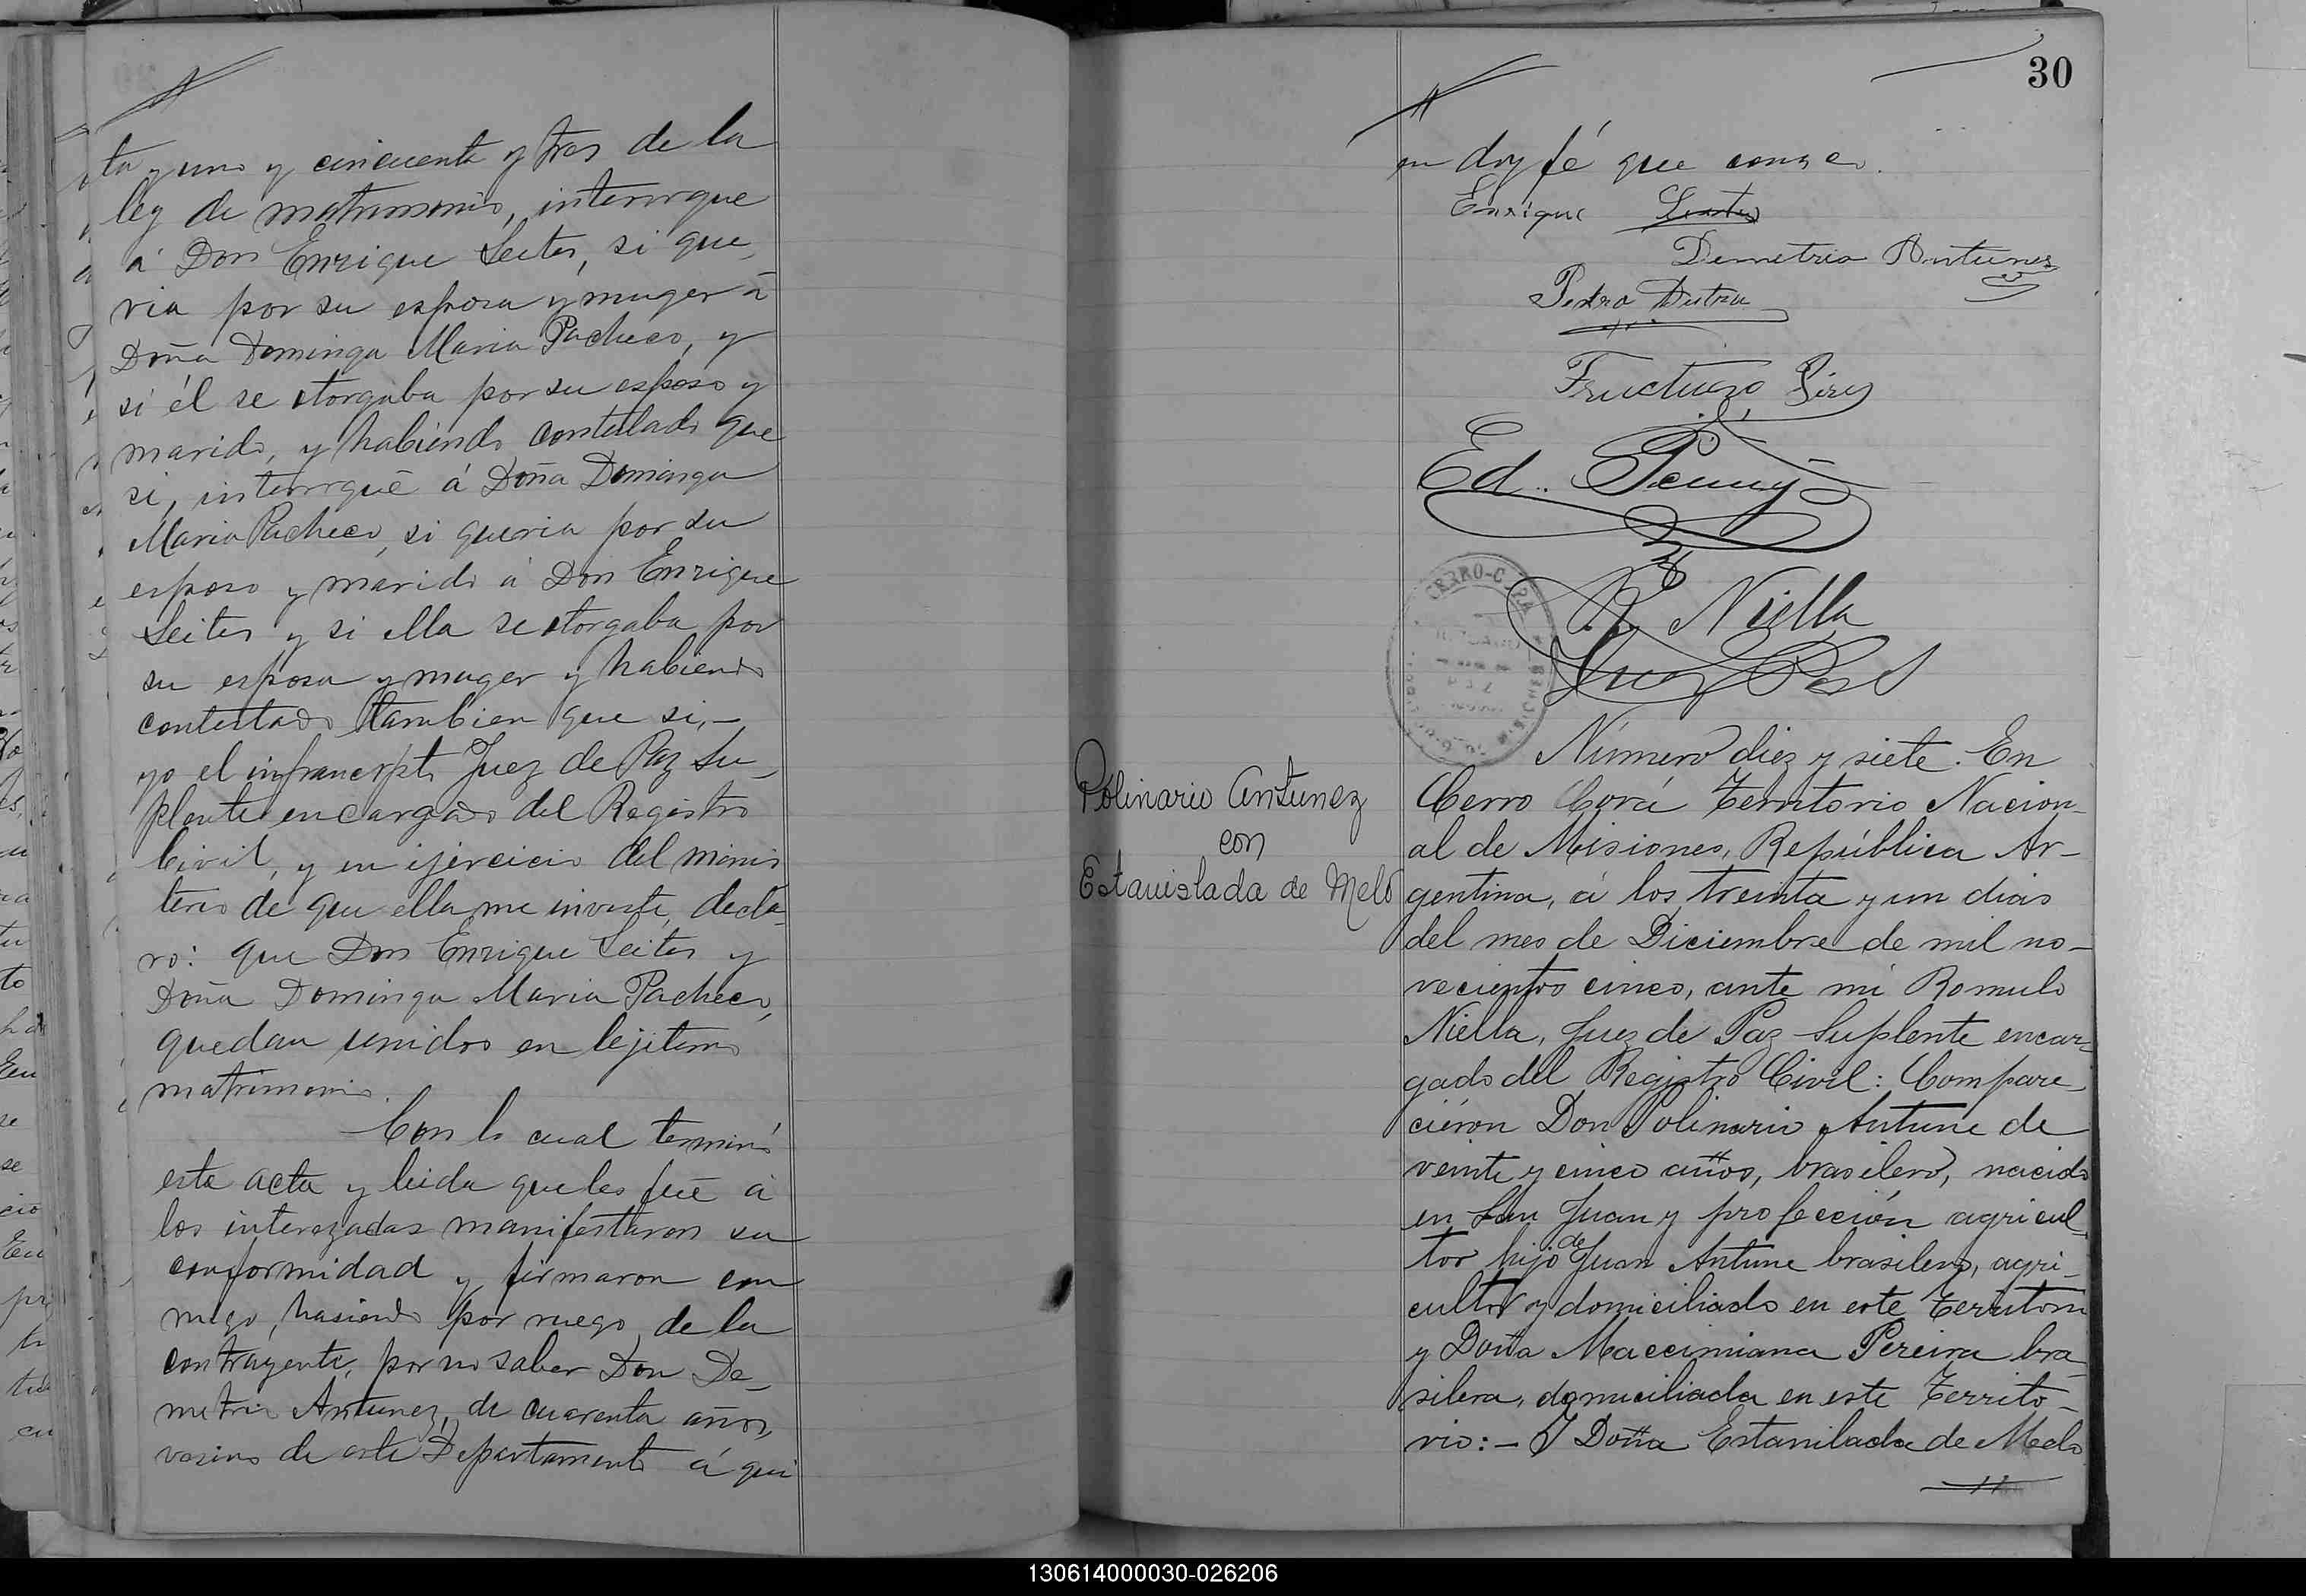 ta y uno y cincuenta y tres de la
ley de matrimonio, interrogue
á Don Enrique Leites, si que
ria por su esposa y muger á
Doña Dominga Maria Pacheco, y
si él se otorgaba por su esposo y
marido, y habiendo contestado que
si, interrogué á Doña Dominga
Maria Pacheco, si queria por su
esposo y marido á Don Enrique
Leites y si ella se otorgaba por
su esposa y muger y habiendo
contestado tambien que si,—
yo el infrancripto Juez de Paz Su-
plente encargado del Registro
Civil, y en ejercicio del minis
terio de que ella me inviste, decla-
ro: que Don Enrique Leites y
Doña Dominga Maria Pacheco,
quedan unidos en lejitimo
matrimonio.
Con lo cual terminó
esta acta y leida que les fué á
los interezadas manifestaron su
conformidad y firmaron con
migo, hasiendo por ruego de la
contrayente, por no saber Don De-
metrio Antunez, de cuarenta años,
vesino de este Departamento á qui
30
en doy fé que conosco.
Enrique Leites
Demetrio Antunes
Pedro Dutra
Fructuozo Pires
Ed. Penuy
R. Niella
Juez Paz
CERRO-CORA
Número diez y siete. En
Cerro Corá Territorio Nacion-
al de Misiones, República Ar-
gentina, á los treinta y un dias
del mes de Diciembre de mil no-
vecientos cinco, ante mi Romulo
Niella, Juez de Paz Suplente encar-
gado del Registro Civil: Compare
ciéron Don Polinario Antune de
veinte y cinco años, brasilero, nacido
en San Juan y profección agricul-
tor hijo de Juan Antune brasilero, agri-
cultor y domiciliado en este Territorio
y Doña Maccimiana Pereira bra-
silera, domiciliada en este Territo-
rio:– Y Doña Estanilada de Melo
Polinario Antunez
con
Estanislada de Melo
130614000030-026206